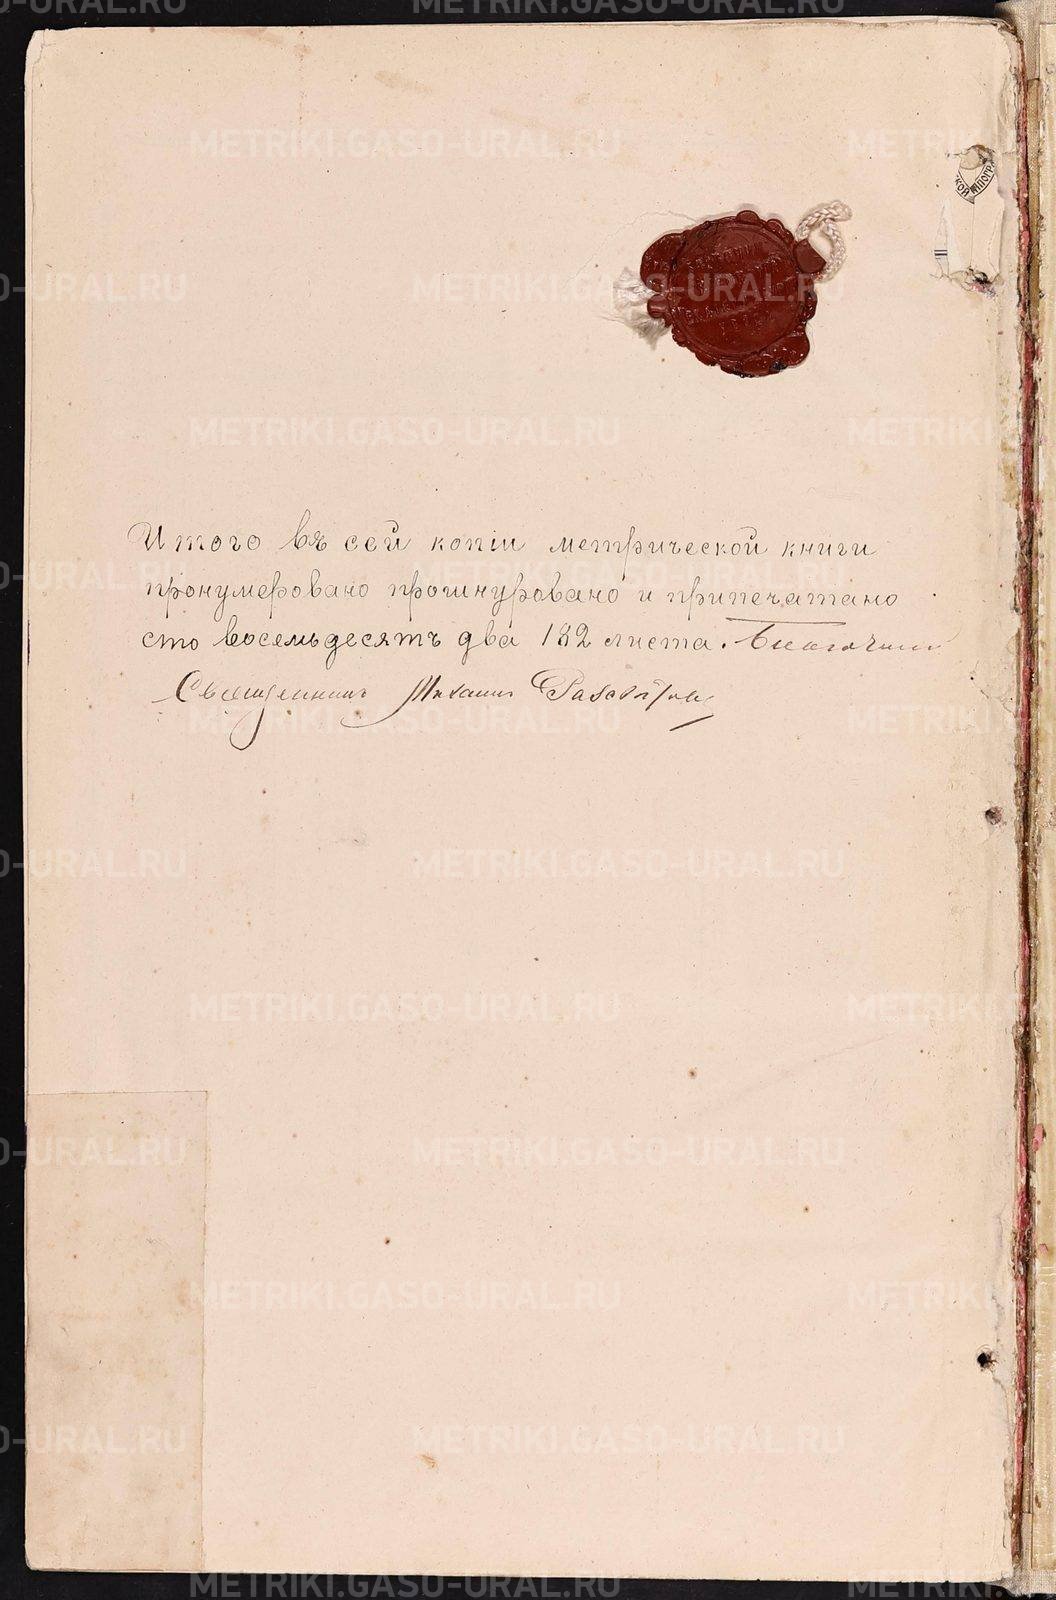 Итого въ сей копіи метрической книги
пронумеровано прошнуровано и припечатано
сто восемьдесятъ два 182 листа. Благочин
Священникъ Михаилъ
METRIKI.GASO-URAL.RU